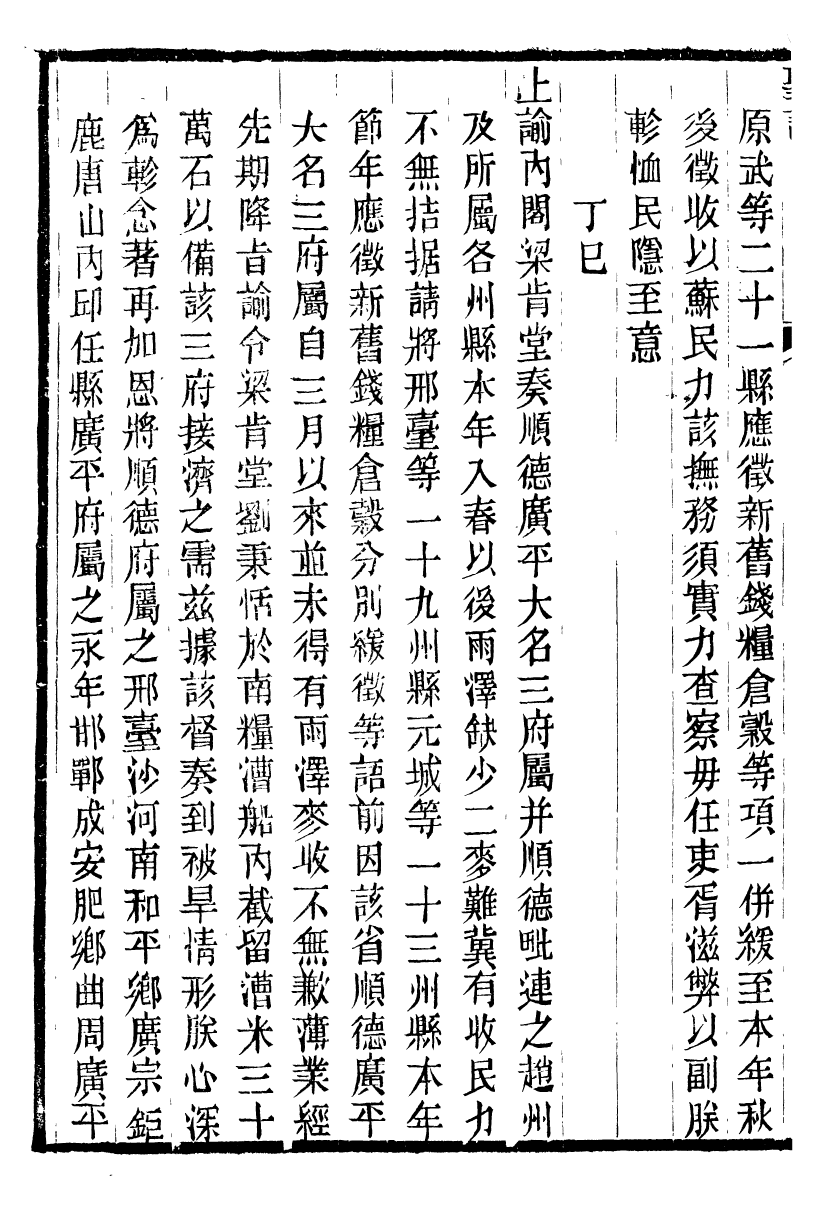 原武等二十一縣應徵新舊錢糧倉穀等項一併緩至本年秋
後徵收以蘇民力該撫務須實力查察毋任吏胥滋弊以副朕
軫恤民隱至意
丁巳
上諭內閣梁肯堂奏順德廣平大名三府屬并順德毗連之趙州
及所屬各州縣本年入春以後雨澤缺少二麥難冀有收民力
不無拮据請將邢臺等一十九州縣元城等一十三州縣本年
節年應徵新舊錢糧倉穀分別緩徵等語前因該省順德廣平
大名三府屬自三月以來並未得有雨澤麥收不無歉薄業經
先期降旨諭令梁肯堂劉秉恬於南糧漕船內截留漕米三十
萬石以備該三府接濟之需茲據該督奏到被旱情形朕心深
為軫念著再加恩將順德府屬之邢臺沙河南和平鄉廣宗鉅
鹿唐山內邱任縣廣平府屬之永年邯鄲成安肥鄉曲周廣平